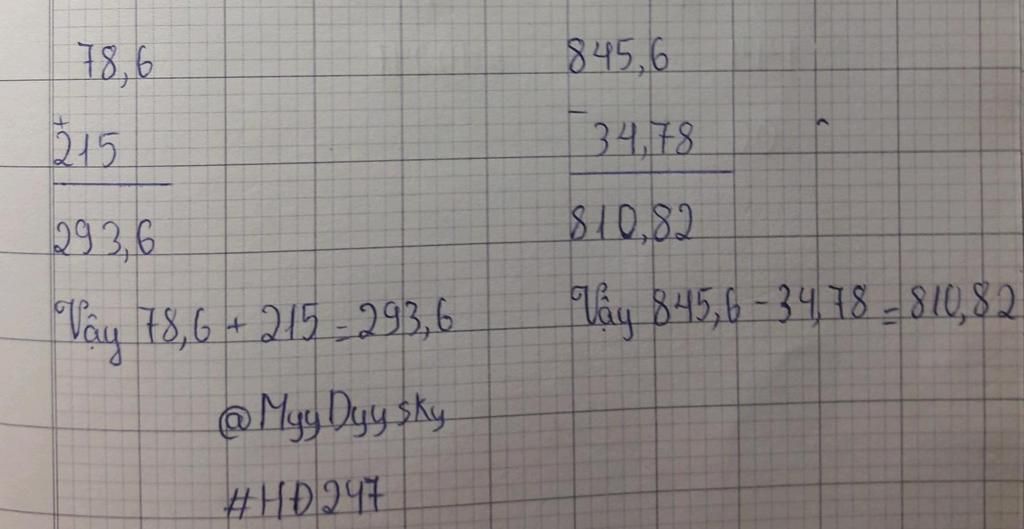 78,6
+
215
293,6
Vậy 78,6 + 215 = 293,6
845,6
-
34,78
810,82
Vậy 845,6 - 34,78 = 810,82
@MyyDyysky
#HĐ247